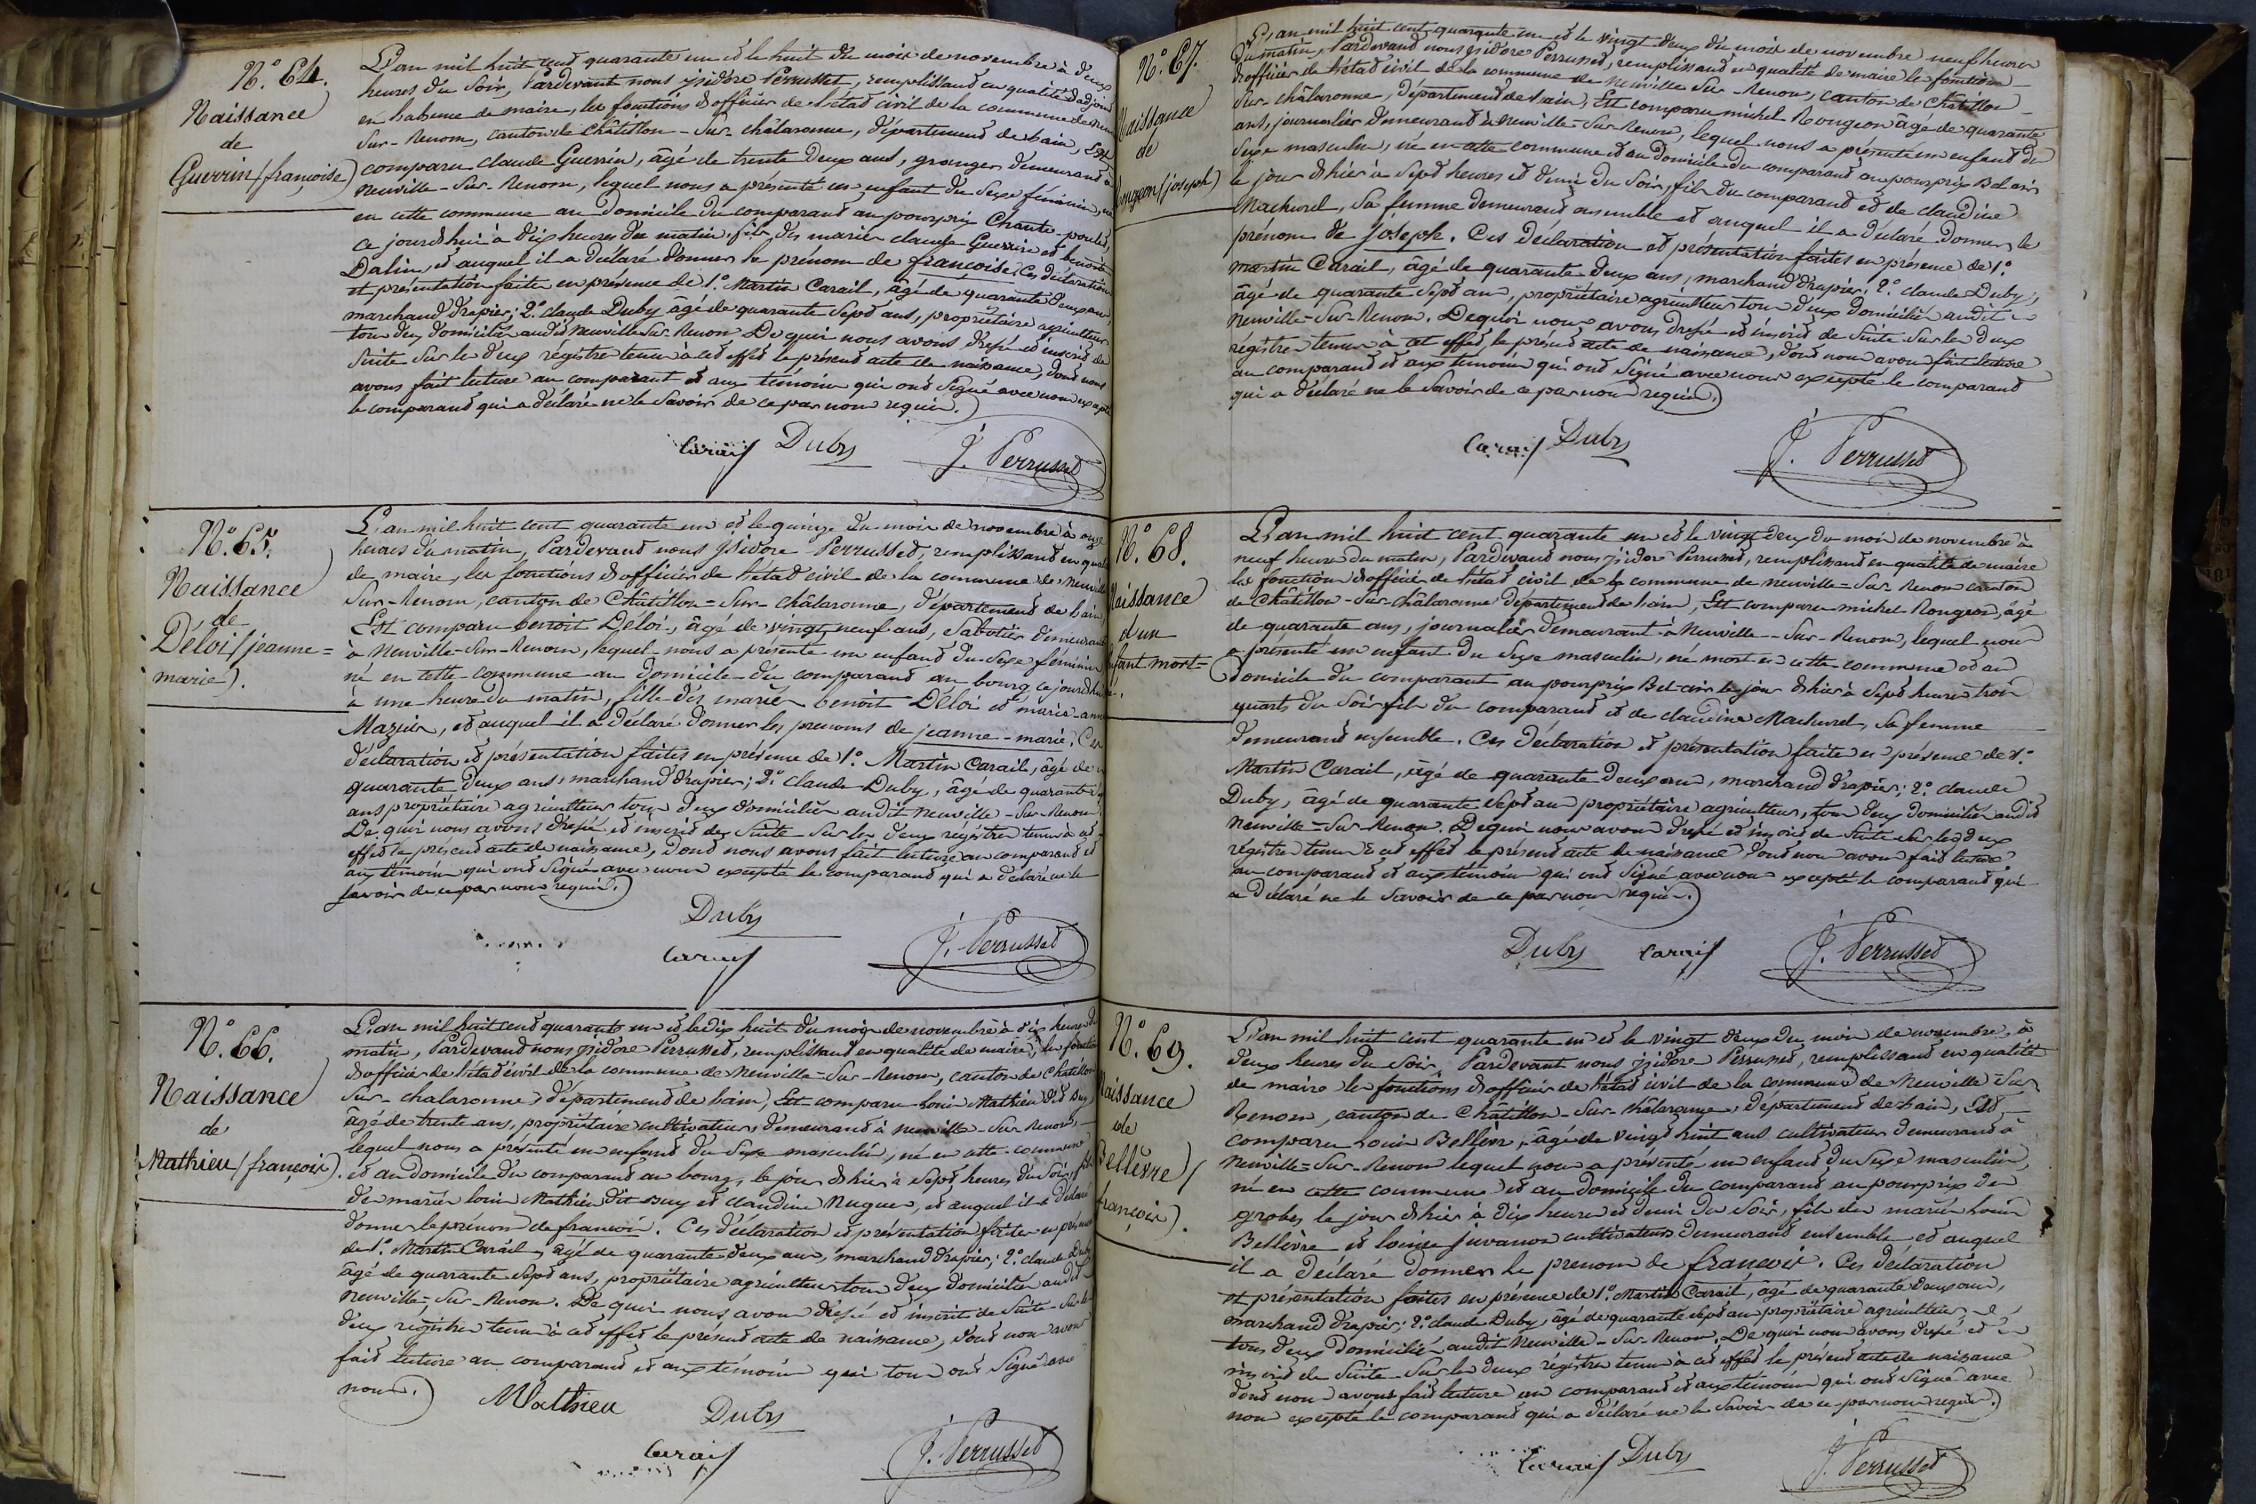 N.° 64.
Naissance
de
Guerrin (françoise)
L'an mil huit cent quarante un et le huit du mois de novembre à deux
heures du soir, Pardevant nous isidore Perrusset, remplissant en qualité d'adjoint
en habsence de maire, les fonctions d'officier de l'état civil de la commune de neuv
Sur-Renom, canton de Châtillon-Sur-châlaronne, département de l'ain, Est
comparu claude Guerrin, âgé de trente deux ans, granger demeurant à
neuville-Sur-Renom, lequel nous a présenté un enfant du Sexe féminin, né
en cette commune au domicile du comparant au pourprix Chante-poulet,
ce jourdhui à dix heures du matin, fils des mariés claude Guerrin et benoite
Dalin, et auquel il a déclaré donner le prénom de francoise. Ces déclaration
et présentation faite en présence de 1.° Martin Carail, âgé de quarante deux ans,
marchand drapier; 2.° claude Duby âgé de quarante Sept ans, propriétaire agriculteur
tous deux domiciliés audit Neuville-Sur-Renom. De quoi nous avons dressé et inscrit de
suite Sur le deux régistre tenu à cet effet le présent acte de naissance, dont nous
avons fait lecture au comparant et aux témoins qui ont Signé avec nous excepté
le comparant qui a déclaré ne le Savoir de ce par nous requis.
Carail Duby J. Perrusset
N.° 65.
Naissance
de
Déloi (jeanne=
marie).
L'an mil huit cent quarante un et le quinze du mois de novembre à onze
heures du matin, Pardevant nous isidore Perrusset, remplissant en qual
de maire, les fonctions d'officier de l'état civil de la commune de Neuville
Sur-Renom, canton de Châtillon=Sur-châlaronne, département de l'ain,
Est comparu benoit Déloi, âgé de vingt neuf ans, Sabotier demeurant
à Neuville-Sur-Renom, lequel nous a présenté un enfant du Sexe féminin
né en cette commune au domicile du comparant au bourg ce jourdhui
à une heure du matin, fille des mariés benoit Déloi et marie-anne
Mazuir, et auquel il a déclaré donner les prénoms de jeanne-marie. Ces
déclaration et présentation faites en présence de 1.° Martin Carail, âgé de
quarante deux ans, marchand drapier; 2.° claude Duby, âgé de quarante
ans propriétaire agriculteur tous deux domiciliés audit Neuville-Sur-Renom.
De quoi nous avons dressé et inscrit de Suite Sur les deux régistre tenu à cet
effet le présent acte de naissance, dont nous avons fait lecture au comparant et
aux témoins qui ont Signé avec nous excepté le comparant qui a déclaré ne le
savoir de ce par nous requis.
Duby
Carail J. Perrusset
N.° 66.
Naissance
de
Mathieu (françois).
L'an mil huit cent quarante un et le dix huit du mois de novembre à dix heures du
matin, Pardevant nous isidore Perrusset, remplissant en qualité de maire, les fonction
d'officier de l'état civil de la commune de Neuville-Sur-Renom, canton de Châtillon
Sur-chalaronne, département de l'ain, Est comparu louis Mathieu dit buy
âgé de trente ans, propriétaire cultivateur demeurant à neuville-Sur-Renom,
lequel nous a présenté un enfant du Sexe masculin, né en cette commune
et au domicile du comparant au bourg, le jour d'hier à Sept heures du Soir, fils
des mariés louis Mathieu dit buy et claudine Nugue, et auquel il a déclaré
donner le prénom de francois. Ces déclaration et présentation faite en présence
de 1.° Martin Carail âgé de quarante deux ans, marchand drapier; 2.° claude Duby
âgé de quarante Sept ans, propriétaire agriculteur tous deux domiciliés audit
neuville-Sur-Renom. De quoi nous avons dressé et inscrit de Suite Sur les
deux registres tenu à cet effet le présent acte de naissance, dont nous avons
fait lecture au comparant et aux témoins qui tous ont Signé avec
nous.
Mathieu Duby
Carail J. Perrusset
N.° 67.
Naissance
de
ougeon (joseph)
L'an mil huit cent quarante un et le vingt deux du mois de novembre neuf heures
du matin, Pardevant nous isidore Perrusset, remplissant en qualité de maire le fonction
d'officier de l'état civil de la commune de Neuville Sur-Renom, canton de Châtillon
Sur-châlaronne, département de l'ain, Est comparu michel Rougeon âgé de quarante
ans, journalier demeurant à Neuville-Sur-Renom, lequel nous a présenté un enfant du
Sexe masculin, né en cette commune et au domicile du comparant au pourprix Bel air
le jour d'hier à Sept heures et demi du Soir, fils du comparant et de claudine
Machurel, Sa femme demeurant ensemble et auquel il a déclaré donner le
prénom de Joseph. Ces déclaration et présentation faites en présence de 1.°
martin Carail, âgé de quarante deux ans, marchand drapier; 2.° claude Duby,
âgé de quarante Sept ans, propriétaire agriculteur tous deux domiciliés audit
Neuville-Sur-Renom. De quoi nous avons dressé et inscrit de Suite Sur le deux
registre tenu à cet effet, le présent acte de naissance, dont nous avons fait lecture
au comparant et aux témoins qui ont Signé avec nous excepté le comparant
qui a déclaré ne le Savoir de ce par nous requis.
Carail Duby J. Perrusset
N.° 68.
Naissance
d'un
enfant mort=
L'an mil huit cent quarante un et le vingt deux du mois de novembre à
neuf heure du matin, Pardevant nous isidore Perrusset, remplissant en qualité de maire
les fonction d'officier de l'état civil de la commune de neuville=Sur-Renom canton
de Châtillon-Sur-châlaronne département de l'ain, Est comparu michel Rougeon, âgé
de quarante ans, journalier demeurant à Neuville-Sur-Renom, lequel nous
a présenté un enfant du Sexe masculin, né mort en cette commune et au
domicile du comparant au pourprix Bel-air le jour d'hier à Sept heures trois
quarts du Soir fils du comparant et de claudine Machurel, Sa femme
demeurant ensemble. Ces déclaration et présentation faite en présence de 1.°
Martin Carail, âgé de quarante deux ans, marchand drapier; 2.° claude
Duby, âgé de quarante Sept ans propriétaire agriculteur, tous deux domiciliés audit
Neuville-Sur-Renom. De quoi nous avons dressé et inscrit de Suite Sur les deux
registre tenu à cet effet le présent acte de naissance dont nous avons fait lecture
au comparant et aux témoins qui ont Signé avec nous excepté le comparant qui
a déclaré ne le Savoir de ce par nous requis.
Duby Carail J. Perrusset
N.° 69.
Naissance
de
Bellèvre (
françois).
L'an mil huit cent quarante un et le vingt deux du mois de novembre, à
deux heures du Soir, Pardevant nous isidore Perrusset, remplissant en qualité
de maire les fonctions d'officier de l'état civil de la commune de Neuville-Sur
Renom, canton de Châtillon-Sur-châlaronne, département de l'ain, Est
comparu Louis Bellèvre, âgé de vingt huit ans cultivateur demeurant à
Neuville-Sur-Renom lequel nous a présenté un enfant du Sexe masculin,
né en cette commune et au domicile du comparant au pourprix des
grobes, le jour d'hier à dix heure et demi du Soir, fils des mariés Louis
Bellèvre et louise Juvanon cultivateurs demeurant ensemble et auquel
il a déclaré donner le prenom de françois. Ces déclaration
et présentation faites en présence de 1.° Martin Carail, âgé de quarante deux ans,
marchand drapier; 2.° claude Duby, âgé de quarante Sept ans propriétaire agriculteur
tous deux domiciliés audit Neuville-Sur-Renom. De quoi nous avons dressé et
inscrit de Suite Sur les deux régistre tenu à cet effet le présent acte de naissance
dont nous avons fait lecture au comparant et aux témoins qui ont Signé avec
nous excepté le comparant qui a déclaré ne le Savoir de ce par nous requis.
Carail Duby J. Perrusset